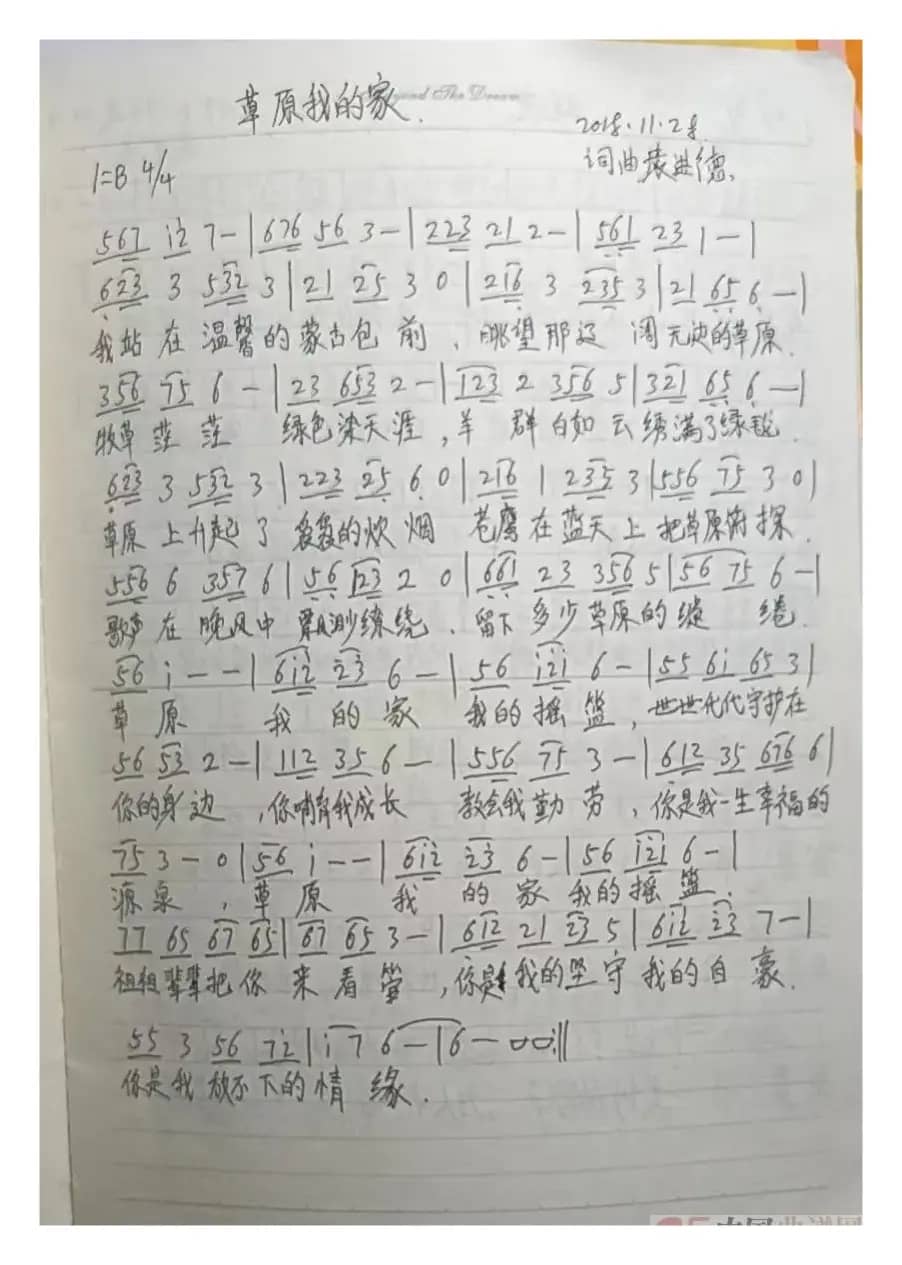 草原我的家.
2018.11.28.
词曲袁世德.
1=B 4/4
567 i2 7-|676 56 3-|223 21 2-|561 23 1-|
623 3 532 3|21 25 3 0|216 3 235 3|21 65 6 -|
我站在温馨的蒙古包前,眺望那辽阔无边的草原.
356 75 6 -|23 653 2-|123 2 356 5|321 65 6 -|
牧草茫茫 绿色染天涯,羊群白如云绣满了绿毯.
623 3 532 3|223 25 6 0|216 1 235 3|556 75 3 0|
草原上升起了袅袅的炊烟 苍鹰在蓝天上把草原俯探.
556 6 357 6|56 123 2 0|661 23 356 5|56 75 6 -|
歌声在晚风中飘渺缭绕.留下多少草原的缱绻.
56 i - -|6i2 i3 6 -|56 i2i 6 -|55 6i 65 3|
草原 我的家 我的摇篮,世世代代守护在
56 53 2-|112 35 6 -|556 75 3 -|612 35 676 6|
你的身边,你哺育我成长 教会我勤劳,你是我一生幸福的
75 3 - 0|56 i - -|6i2 i3 6 -|56 i2i 6 -|
源泉,草原 我的家 我的摇篮.
77 65 67 65|67 65 3 -|612 21 23 5|6i2 i3 7 -|
祖祖辈辈把你来看管,你是我的坚守我的自豪.
55 3 56 72|i 7 6 -|6 - 00:||
你是我放不下的情缘.